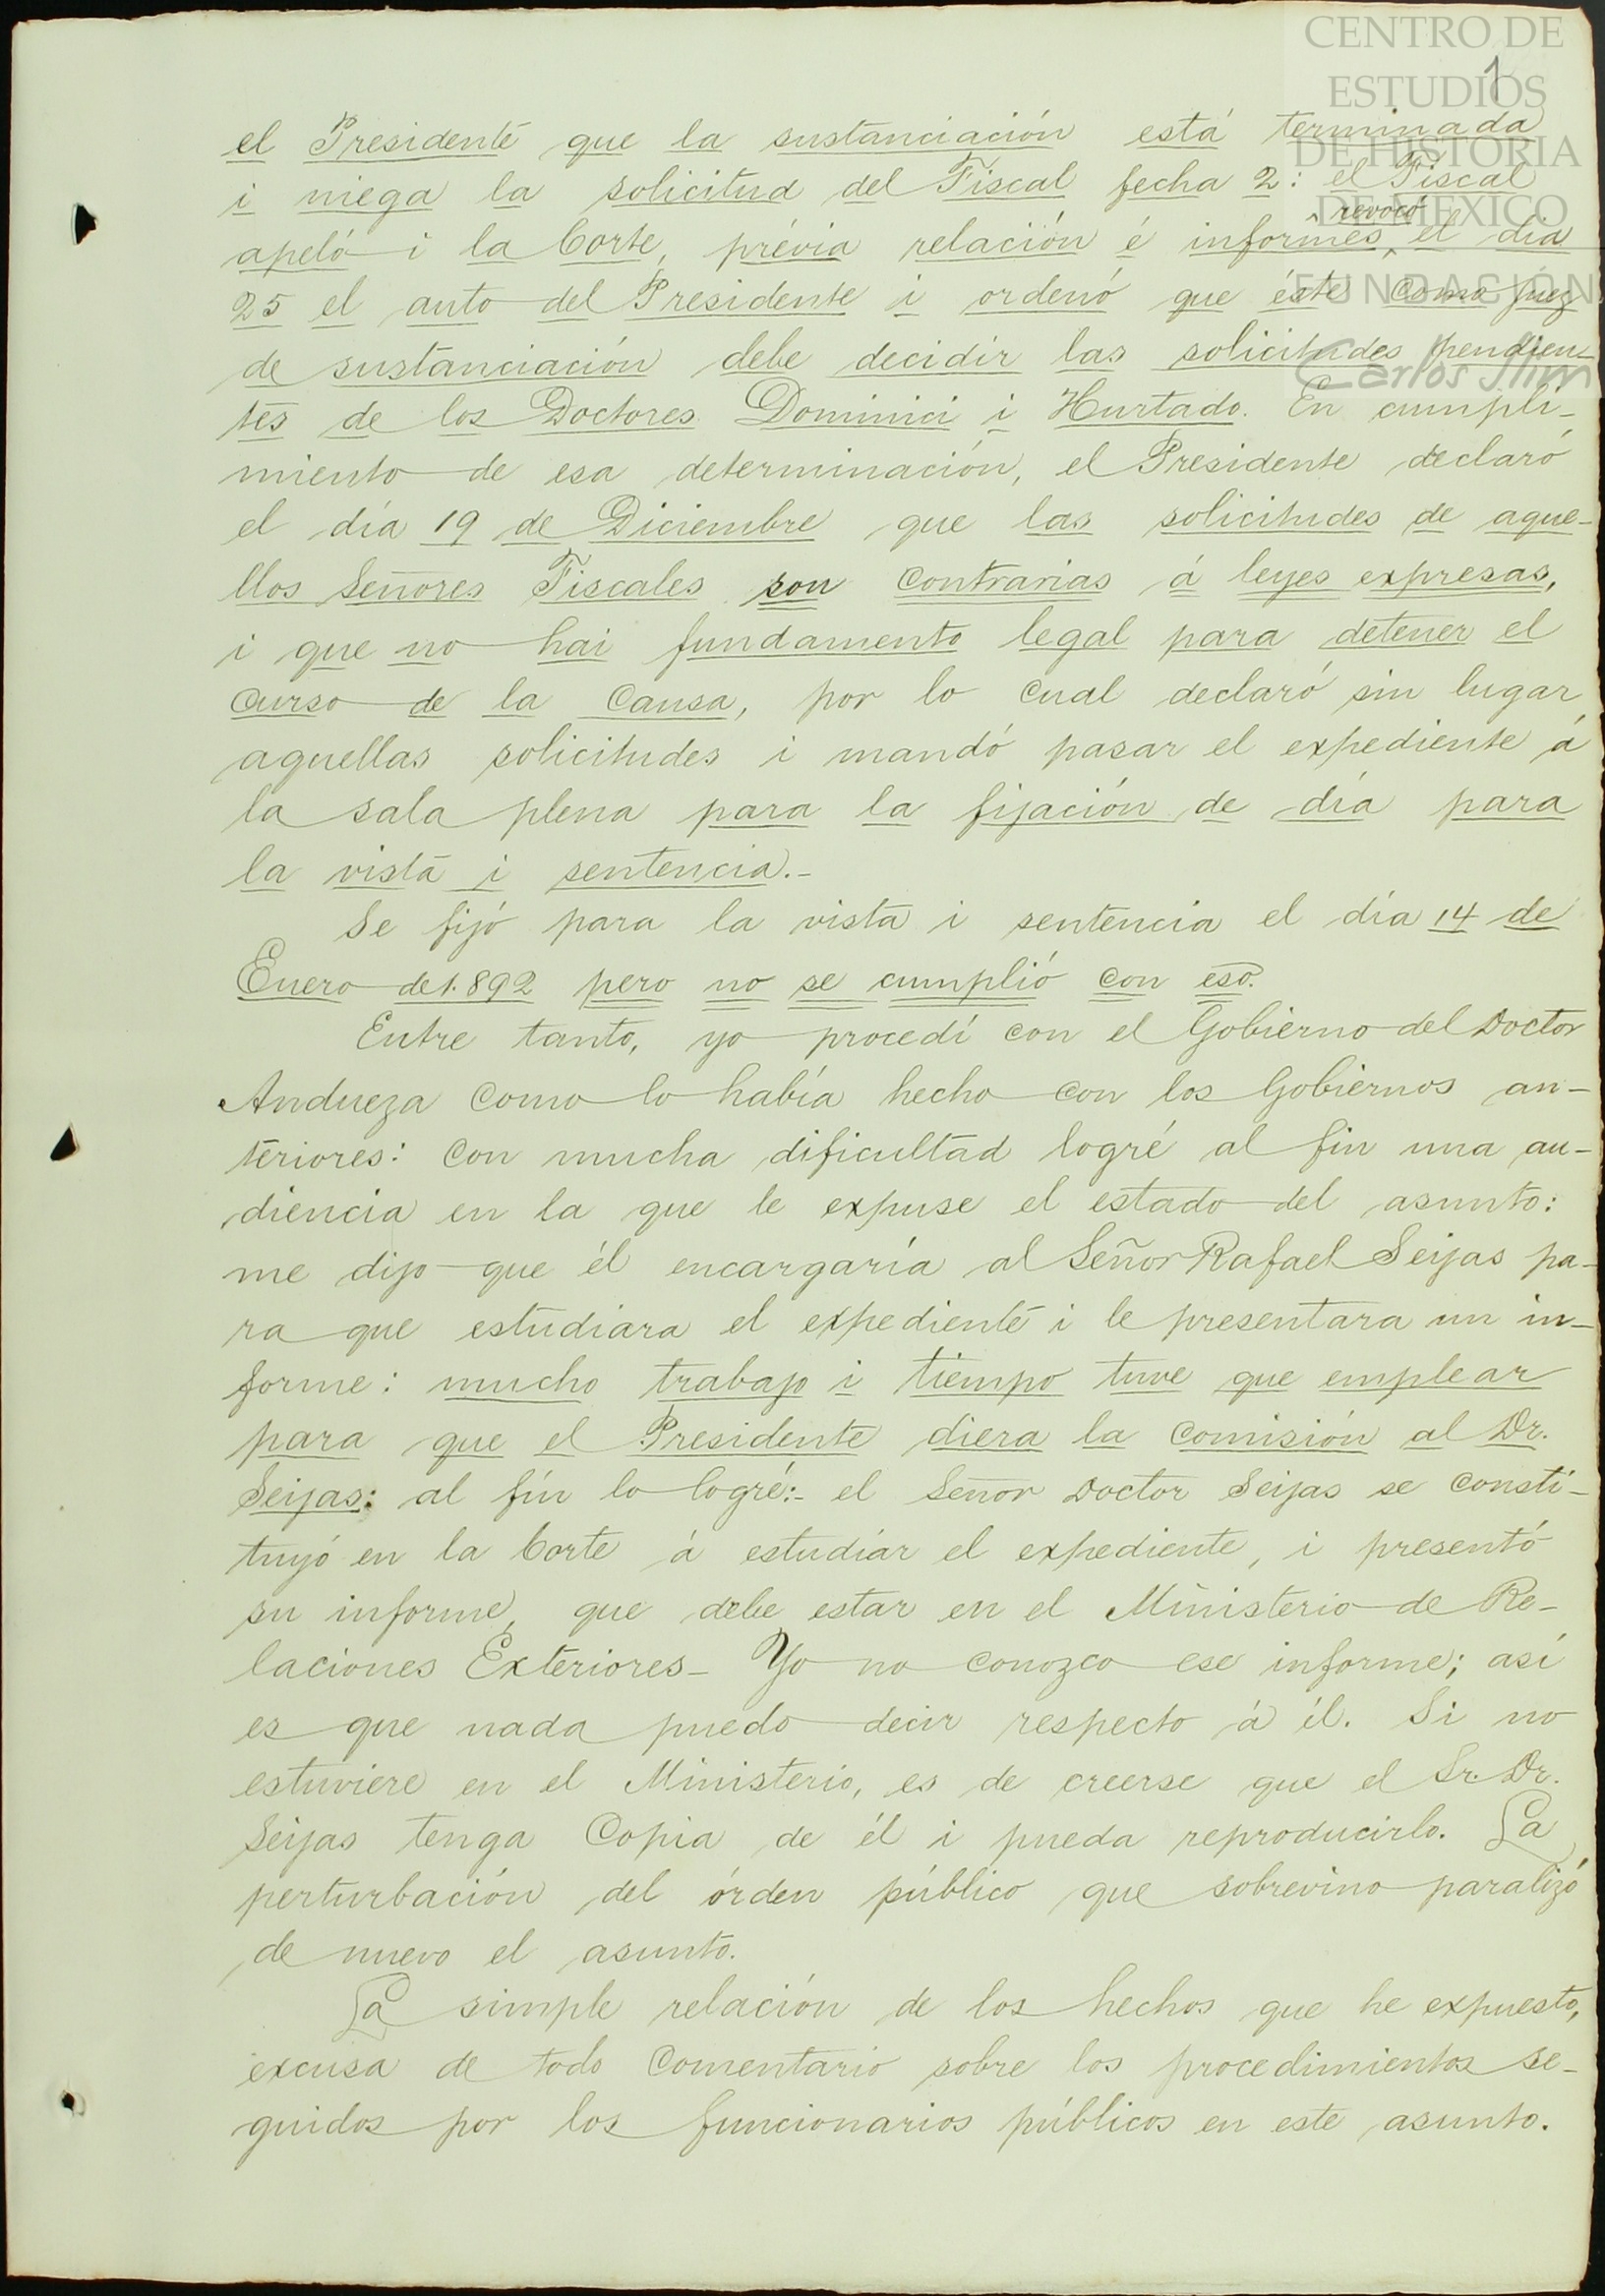 CENTRO DE
ESTUDIOS
DE HISTORIA
DE MEXICO
FUNDACIÓN
Carlos Slim
1
el Presidente que la sustanciación está terminada
i niega la solicitud del Fiscal fecha 2: el Fiscal
apeló i la Corte, prévia relación é informes, revocó el día
25 el auto del Presidente i ordenó que éste como juez
de sustanciación debe decidir las solicitudes pendien-
tes de los Doctores Dominici i Hurtado. En cumpli-
miento de esa determinación, el Presidente declaró
el día 19 de Diciembre que las solicitudes de aque-
llos Señores Fiscales son contrarias á leyes expresas,
i que no hai fundamento legal para detener el
curso de la Causa, por lo cual declaró sin lugar
aquellas solicitudes i mandó pasar el expediente á
la sala plena para la fijación de día para
la vista i sentencia.-
Se fijó para la vista i sentencia el día 14 de
Enero de 1.892 pero no se cumplió con eso.
Entre tanto, yo procedí con el Gobierno del Doctor
Andueza como lo había hecho con los Gobiernos an-
teriores: con mucha dificultad logré al fin una au-
diencia en la que le expuse el estado del asunto:
me dijo que él encargaría al Señor Rafael Seijas pa-
ra que estudiara el expediente i le presentara un in-
forme: mucho trabajo i tiempo tuve que emplear
para que el Presidente diera la comisión al Dr.
Seijas: al fin lo logré:- el Señor Doctor Seijas se consti-
tuyó en la Corte á estudiar el expediente, i presentó
su informe, que debe estar en el Ministerio de Re-
laciones Exteriores- Yo no conozco ese informe; así
es que nada puedo decir respecto á él. Si no
estuviere en el Ministerio, es de creerse que el Sr. Dr.
Seijas tenga Copia de él i pueda reproducirlo. La
perturbación del órden público que sobrevino paralizó
de nuevo el asunto.
La simple relación de los hechos que he expuesto,
excusa de todo Comentario sobre los procedimientos se-
guidos por los funcionarios públicos en este asunto.